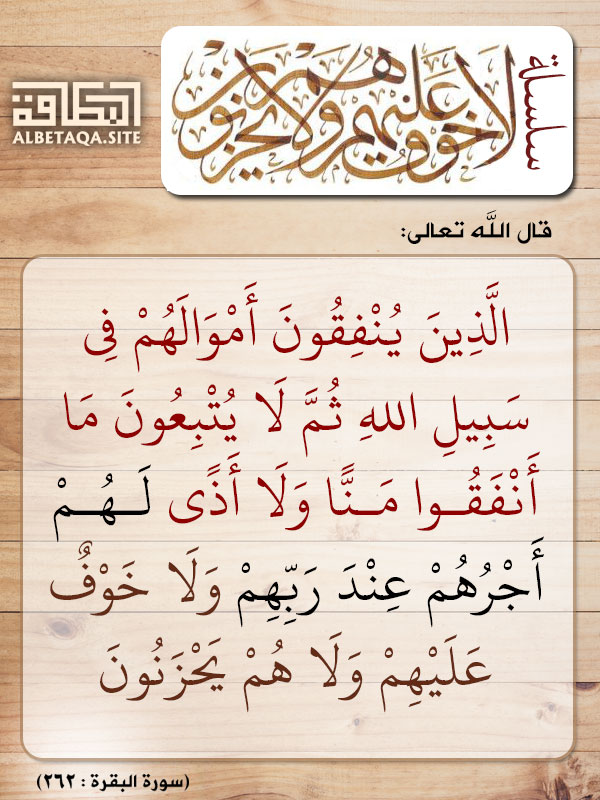 البطاقة
ALBETAQA.SITE
سلسلة
لا خوف عليهم ولا هم يحزنون
قال اللَّه تعالى:
الَّذِينَ يُنْفِقُونَ أَمْوَالَهُمْ فِي
سَبِيلِ اللهِ ثُمَّ لَا يُتْبِعُونَ مَا
أَنْفَقُــوا مَــنًّا وَلَا أَذًى لَــهُــمْ
أَجْرُهُمْ عِنْدَ رَبِّهِمْ وَلَا خَوْفٌ
عَلَيْهِمْ وَلَا هُمْ يَحْزَنُونَ
(سورة البقرة : ٢٦٢)